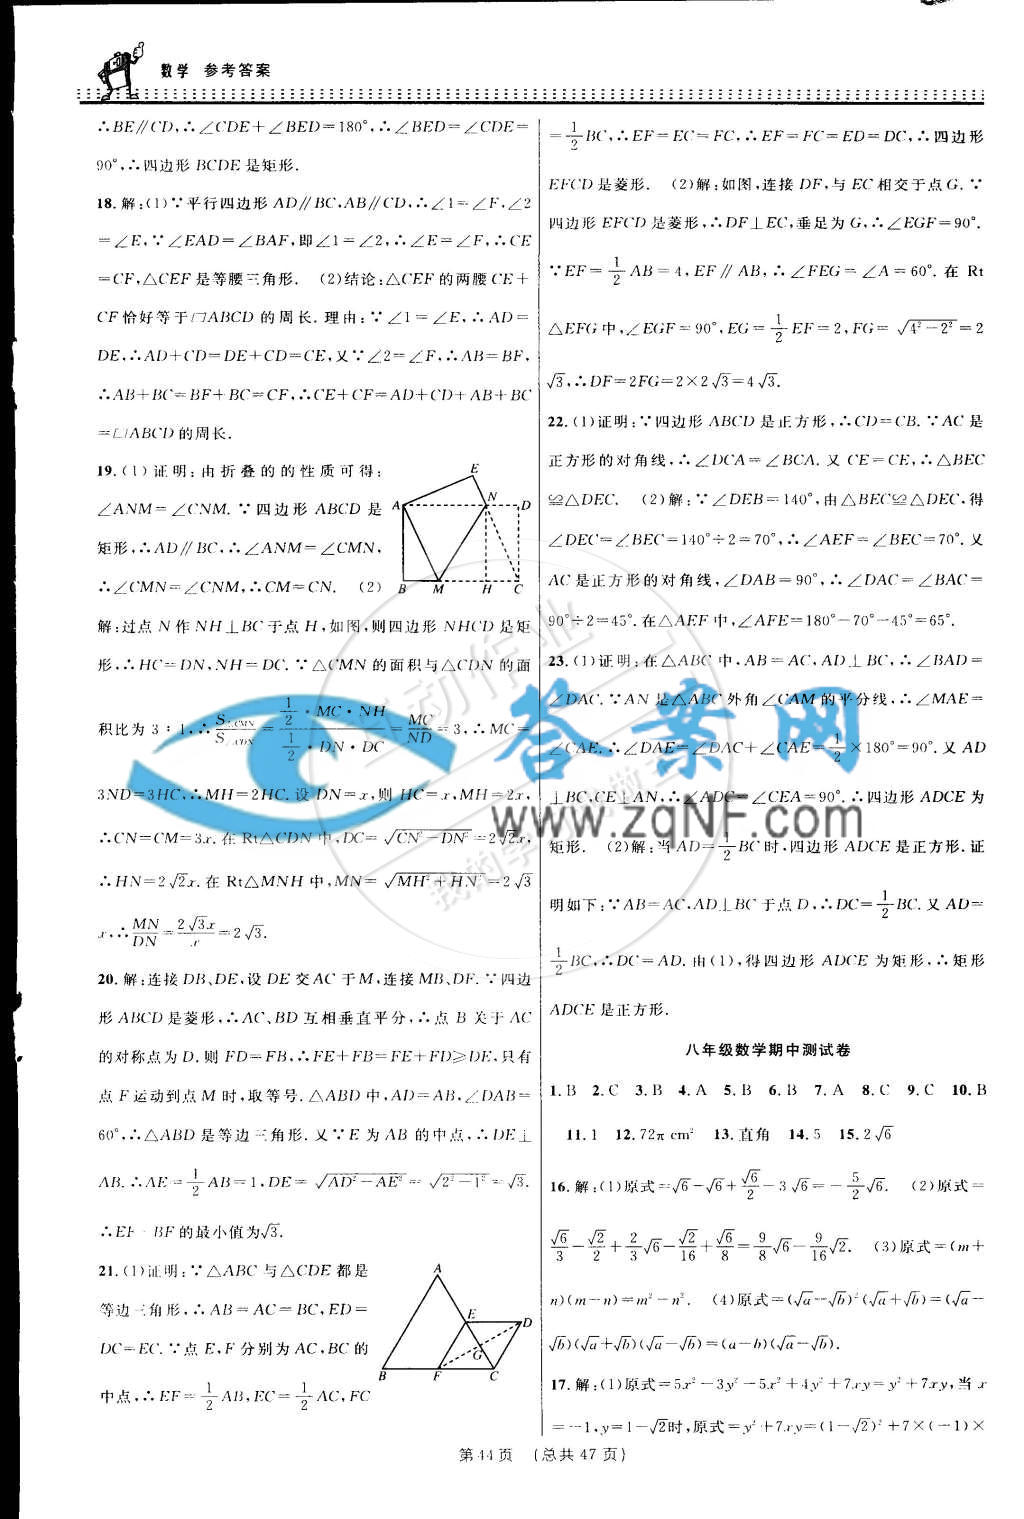 数学 参考答案
∴BE∥CD,∴∠CDE+∠BED=180°,∴∠BED=∠CDE=
90°,∴四边形 BCDE 是矩形.
18.解:(1)∵平行四边形 AD∥BC,AB∥CD,∴∠1=∠F,∠2
=∠E,∵∠EAD=∠BAF,即∠1=∠2,∴∠E=∠F,∴CE
=CF,△CEF 是等腰三角形. (2)结论:△CEF 的两腰 CE+
CF 恰好等于□ABCD 的周长.理由:∵∠1=∠E,∴AD=
DE,∴AD+CD=DE+CD=CE,又∵∠2=∠F,∴AB=BF,
∴AB+BC=BF+BC=CF,∴CE+CF=AD+CD+AB+BC
=□ABCD 的周长.
19.(1)证明:由折叠的的性质可得:
∠ANM=∠CNM.∵四边形 ABCD 是
矩形,∴AD∥BC,∴∠ANM=∠CMN,
∴∠CMN=∠CNM,∴CM=CN. (2)
A E N D B M H C
解:过点 N 作 NH⊥BC 于点 H,如图,则四边形 NHCD 是矩
形,∴HC=DN,NH=DC.∵△CMN 的面积与△CDN 的面
积比为 3∶1,∴S△CMN/S△CDN=(1/2·MC·NH)/(1/2·DN·DC)=MC/ND=3,∴MC=
3ND=3HC,∴MH=2HC.设 DN=x,则 HC=x,MH=2x,
∴CN=CM=3x.在 Rt△CDN 中,DC=√(CN²-DN²)=2√2x,
∴HN=2√2x.在 Rt△MNH 中,MN=√(MH²+HN²)=2√3
x,∴MN/DN=2√3x/x=2√3.
20.解:连接 DB、DE,设 DE 交 AC 于 M,连接 MB、DF.∵四边
形 ABCD 是菱形,∴AC、BD 互相垂直平分,∴点 B 关于 AC
的对称点为 D.则 FD=FB,∴FE+FB=FE+FD≥DE,只有
点 F 运动到点 M 时,取等号.△ABD 中,AD=AB,∠DAB=
60°,∴△ABD 是等边三角形.又∵E 为 AB 的中点,∴DE⊥
AB.∴AE=1/2 AB=1,DE=√(AD²-AE²)=√(2²-1²)=√3.
∴EF+BF 的最小值为√3.
21.(1)证明:∵△ABC 与△CDE 都是
等边三角形,∴AB=AC=BC,ED=
DC=EC.∵点 E、F 分别为 AC、BC 的
中点,∴EF=1/2 AB,EC=1/2 AC,FC
A E D G B F C
=1/2 BC,∴EF=EC=FC,∴EF=FC=ED=DC,∴四边形
EFCD 是菱形. (2)解:如图,连接 DF,与 EC 相交于点 G.∵
四边形 EFCD 是菱形,∴DF⊥EC,垂足为 G,∴∠EGF=90°.
∵EF=1/2 AB=4,EF∥AB,∴∠FEG=∠A=60°.在 Rt
△EFG 中,∠EGF=90°,EG=1/2 EF=2,FG=√(4²-2²)=2
√3,∴DF=2FG=2×2√3=4√3.
22.(1)证明:∵四边形 ABCD 是正方形,∴CD=CB.∵AC 是
正方形的对角线,∴∠DCA=∠BCA.又 CE=CE,∴△BEC
≌△DEC. (2)解:∵∠DEB=140°,由△BEC≌△DEC,得
∠DEC=∠BEC=140°÷2=70°,∴∠AEF=∠BEC=70°.又
AC 是正方形的对角线,∠DAB=90°,∴∠DAC=∠BAC=
90°÷2=45°.在△AEF 中,∠AFE=180°-70°-45°=65°.
23.(1)证明:在△ABC 中,AB=AC,AD⊥BC,∴∠BAD=
∠DAC.∵AN 是△ABC 外角∠CAM 的平分线,∴∠MAE=
∠CAE.∴∠DAE=∠DAC+∠CAE=1/2×180°=90°.又 AD
⊥BC,CE⊥AN,∴∠ADC=∠CEA=90°.∴四边形 ADCE 为
矩形. (2)解:当 AD=1/2 BC 时,四边形 ADCE 是正方形.证
明如下:∵AB=AC,AD⊥BC 于点 D,∴DC=1/2 BC.又 AD=
1/2 BC,∴DC=AD.由(1),得四边形 ADCE 为矩形,∴矩形
ADCE 是正方形.
八年级数学期中测试卷
1.B 2.C 3.B 4.A 5.B 6.B 7.A 8.C 9.C 10.B
11.1 12.72π cm² 13.直角 14.5 15.2√6
16.解:(1)原式=√6-√6+√6/2-3√6=-5/2√6. (2)原式=
√6/3-√2/2+2/3√6-√2/16+√6/8=9/8√6-9/16√2. (3)原式=(m+
n)(m-n)=m²-n². (4)原式=(√a-√b)²(√a+√b)=(√a-
√b)(√a+√b)(√a-√b)=(a-b)(√a-√b).
17.解:(1)原式=5x²-3y²-5x²+4y²+7xy=y²+7xy,当 x
=-1,y=1-√2时,原式=y²+7xy=(1-√2)²+7×(-1)×
第 44 页 (总共 47 页)
答案网
www.zqNF.com